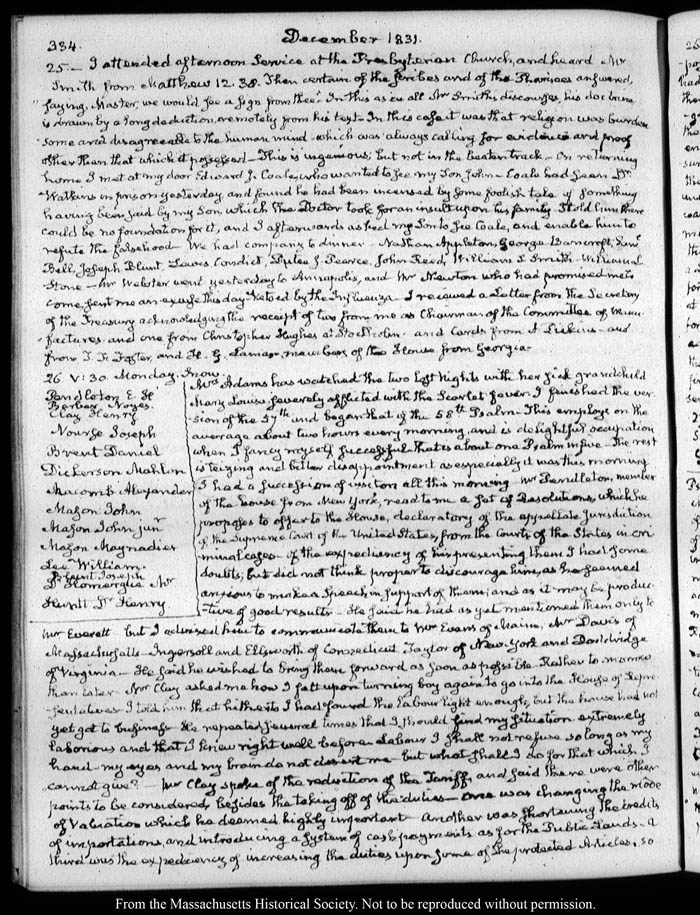 334.
December 1831.
25.— I attended afternoon Service at the Presbyterian Church, and heard Mr
Smith from Matthew 12. 38. Then certain of the scribes and of the Pharisees answered,
saying, Master, we would see a sign from thee. In this as in all Mr Smith's discourses, his doctrine
is drawn by a long deduction, remotely from his text— In this case it was that religion was burden
some and disagreeable to the human mind which was always calling for evidence and proof
other than that which it possessed— This is ingenious; but not in the beaten track— On returning
home I met at my door Edward J. Coale, who wanted to see my Son John— Coale had seen Dr
Watkins in prison yesterday, and found he had been incensed by some foolish tale of something
having been said by my Son which the Doctor took for an insult upon his family. I told him there
could be no foundation for it, and I afterwards asked my Son to see Coale, and enable him to
refute the falsehood. We had company to dinner— Nathan Appleton, George Bancroft,
Bell, Joseph Blunt, Lewis Condict, Dutee J. Pearce, John Reed, William S. Smith
Stone— Mr Webster went yesterday to Annapolis, and Mr Newton who had promised me to
come, sent me an excuse this day by the Influenza— I received a Letter from the Secretary
of the Treasury acknowledging the receipt of two from me as Chairman of the Committee of Manu-
factures and one from Christopher Hughes at Stockholm and Cards from
from T. F. Foster, and H. G. Lamar, members of the House from Georgia—
26 V: 30. Monday. Snow.
Pendleton E. H
Barber Noyes.
Clay Henry
Nourse Joseph
Brent Daniel
Dickerson Mahlon
Macomb Alexander
Mason John
Mason John junr
Mason Maynadier
Lee William.
Blunt Joseph
D'Homergue Mr
Huntt Dr Henry
Mrs Adams has watched the two last Nights with her sick grandchild
Mary Louisa, severely afflicted with the Scarlet fever. I finished the ver-
sion of the 57th and began that of the 58th Psalm. This employs on the
average about two hours every morning, and is delightful occupation
when I fancy myself successful. That is about one Psalm in five. The rest
is teizing and bitter disappointment as especially it was this morning
I had a succession of visitors all this morning Mr Pendleton, member
of the House from New York, read to me a set of Resolutions, which he
proposes to offer to the House, declaratory of the appellate Jurisdiction
of the Supreme Court of the United States, from the Courts of the States in cri-
minal cases— of the expediency of his presenting them I had some
doubts; but did not think proper to discourage him, as he seemed
anxious to make a Speech in support of them; and as it may be produc-
tive of good results— He said he had as yet mentioned them only to
Mr Everett but I advised him to communicate them to Mr Evans of Maine, Mr Davis of
Massachusetts— Ingersoll and Ellsworth of Connecticut Taylor of New-York and Doddridge
of Virginia— He said he wished to bring them forward as soon as possible. Rather to morrow
than later Mr Clay asked me how I felt upon turning boy again to go into the House of Repre-
sentatives I told him that hitherto I had found the labour light enough, but the house had not
yet got to business He repeated several times that I should find my situation extremely
laborious and that I knew right well before— Labour I shall not refuse so long as my
hand my eyes and my brain do not desert me but what shall I do for that which I
cannot give?— Mr Clay spoke of the reduction of the Tariff, and said there were other
points to be considered, besides the taking off of the duties— one was changing the mode
of Valuation which he deemed highly important Another was shortening the credits
of importations, and introducing a system of cash payments as for the Public Lands— A
third was the expediency of increasing the duties upon some of the protected Articles, so
From the Massachusetts Historical Society. Not to be reproduced without permission.